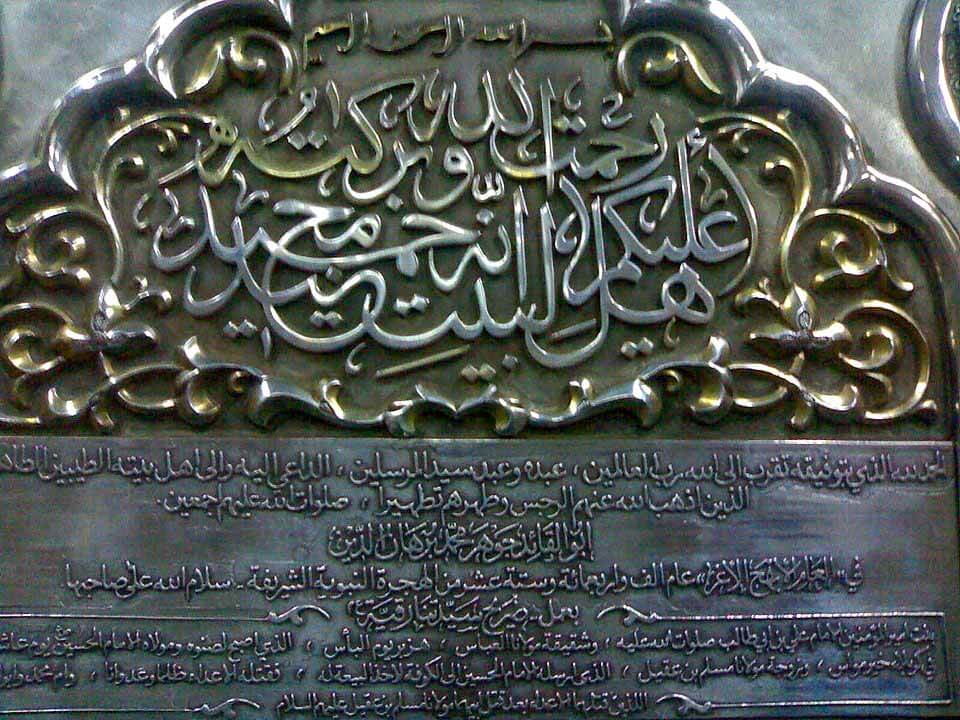 بسم الله الرحمن الرحيم
رحمت الله وبركته
عليكم أهل البيت إنه حميد مجيد
الحمد لله الذي بتوفيقه تقرب الى الله رب العالمين ، عبده وعبد سيد المرسلين ، الداعي اليه والى اهل بيته الطيبين الطاه
الذين اذهب الله عنهم الرجس وطهرهم تطهيرا ، صلوات الله عليهم اجمعين.
ابو القائد جوهر محمد برهان الدين
في العام الف واربعمائة وستة عشر من الهجرة النبوية الشريفة - سلام الله على صاحبها
بعمل ضريح سيدتنا رقية
بنت امير المؤمنين الامام علي بن ابي طالب صلوات الله عليه ، وشقيقة مولانا العباس ، هزبر يوم البأس ، الذي اصبح لصنوه ومولاه الامام الحسين يوم عاش
في كربلاء خير مواس ، وزوجة مولانا مسلم بن عقيل ، الذي ارسله الامام الحسين الى الكوفة لاخذ البيعة له ، فقتله الاعداء ظلما وعدوانا ، وام محمد وابرا
اللذين قتلهما الاعداء بعد قتل ابيهما مولانا مسلم بن عقيل عليهم السلام